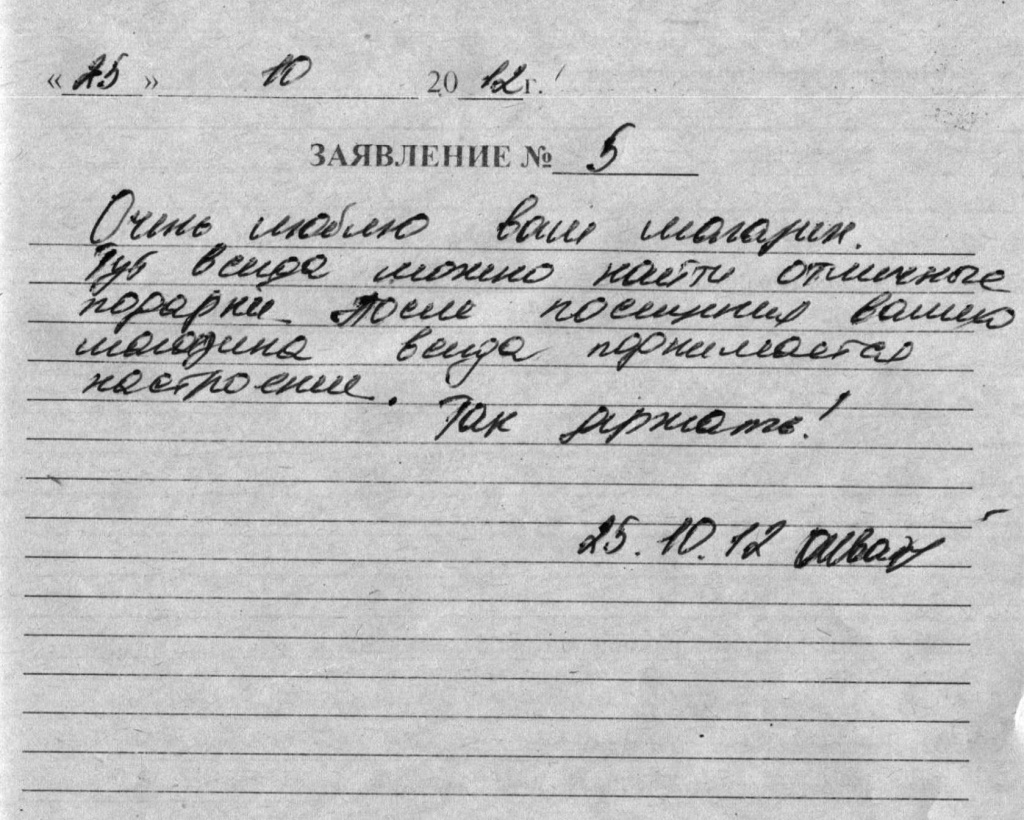 « 25 » 10 20 12 г.
ЗАЯВЛЕНИЕ № 5
Очень люблю ваш магазин.
Тут всегда можно найти отличные
подарки. После посещения вашего
магазина всегда поднимается
настроение.
Так держать!
25.10.12